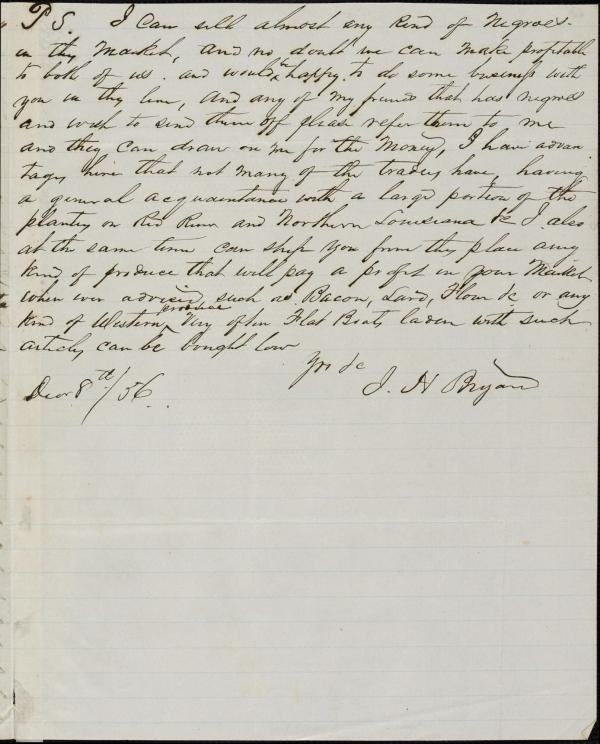 P S. I can sell almost any kind of Negroes
in this Market, and no doubt we can make profitable
to both of us. and would be happy to do some business with
you in this line, and any of my friends that has negroes
and wish to send them off please refer them to me
and they can draw on me for the Money, I have advan
tages here that not many of the traders have, having
a general acquaintance with a large portion of the
planters on Red River and Northern Louisiana &c I also
at the same time can ship you from this place any
kind of produce that will pay a profit in your Market
when ever advised, such as Bacon, Lard, Flour &c or any
kind of Western produce Very often Flat Boats laden with such
articles can be bought low
Yrs &c
Decr 8th/56. J. H Bryan